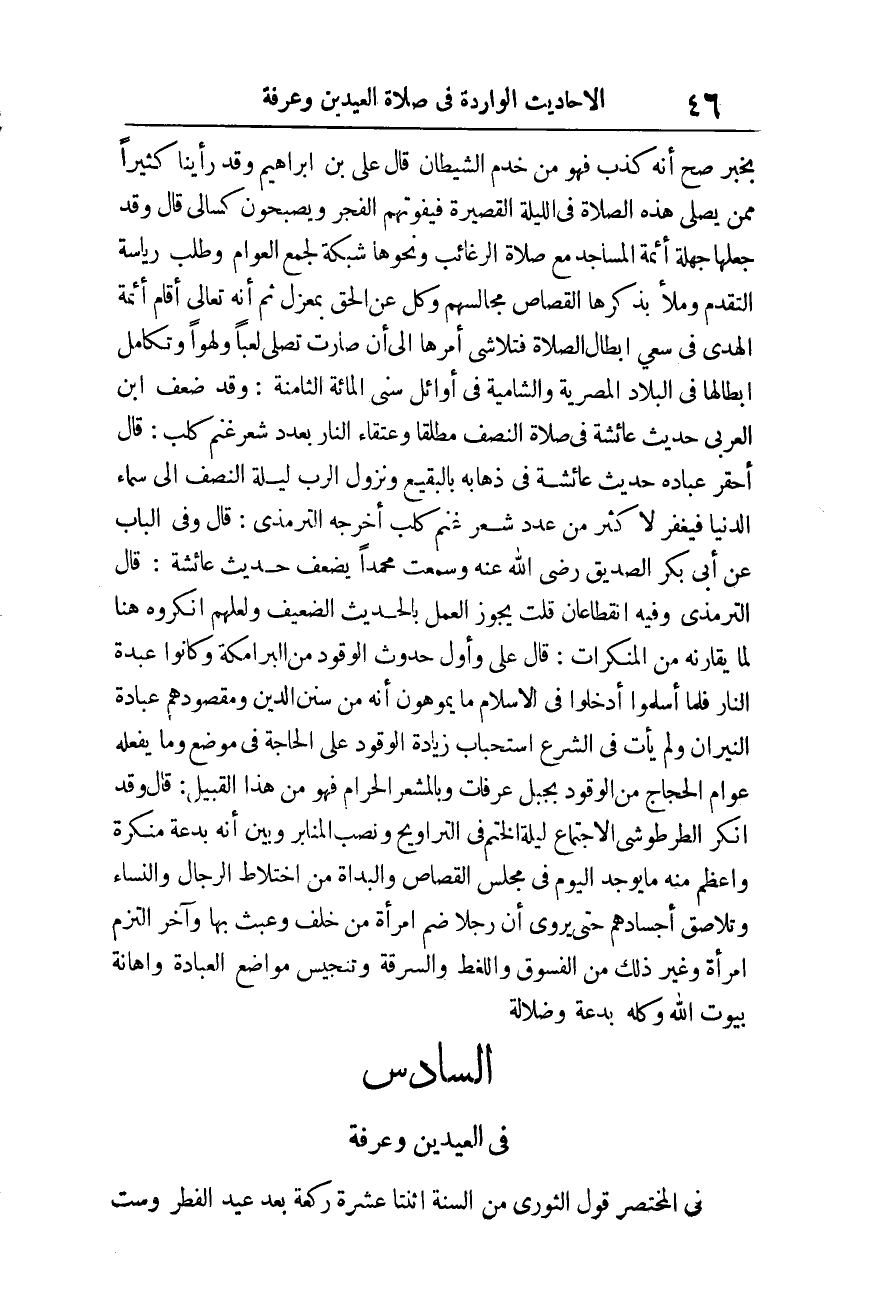 ٤٦ الاحاديث الواردة فى صلاة العيدين وعرفة
بخبر صح أنه كذب فهو من خدم الشيطان قال على بن ابراهيم وقد رأينا كثيراً
ممن يصلى هذه الصلاة فى الليلة القصيرة فيفوتهم الفجر ويصبحون كسالى قال وقد
جعلها جهلة أئمة المساجد مع صلاة الرغائب ونحوها شبكة لجمع العوام وطلب رياسة
التقدم وملأ بذكرها القصاص مجالسهم وكل عن الحق بمعزل ثم أنه تعالى أقام أئمة
الهدى فى سعي ابطال الصلاة فتلاشى أمرها الى أن صارت تصلى لعباً ولهواً وتكامل
ابطالها فى البلاد المصرية والشامية فى أوائل سنى المائة الثامنة : وقد ضعف ابن
العربى حديث عائشة فى صلاة النصف مطلقا وعتقاء النار بعدد شعر غنم كلب : قال
أحقر عباده حديث عائشة فى ذهابه بالبقيع ونزول الرب ليلة النصف الى سماء
الدنيا فيغفر لا كثر من عدد شعر غنم كلب أخرجه الترمذى : قال وفى الباب
عن أبى بكر الصديق رضى الله عنه وسمعت محمداً يضعف حديث عائشة : قال
الترمذى وفيه انقطاعان قلت يجوز العمل بالحديث الضعيف ولعلهم انكروه هنا
لما يقارنه من المنكرات : قال على وأول حدوث الوقود من البرامكة وكانوا عبدة
النار فلما أسلموا أدخلوا فى الاسلام ما يموهون أنه من سنن الدين ومقصودهم عبادة
النيران ولم يأت فى الشرع استحباب زيادة الوقود على الحاجة فى موضع وما يفعله
عوام الحجاج من الوقود بجبل عرفات وبالمشعر الحرام فهو من هذا القبيل : قال وقد
انكر الطرطوشى الاجتماع ليلة الختم فى التراويح ونصب المنابر وبين أنه بدعة منكرة
واعظم منه مايوجد اليوم فى مجلس القصاص والبداة من اختلاط الرجال والنساء
وتلاصق أجسادهم حتى يروى أن رجلا ضم امرأة من خلف وعبث بها وآخر التزم
امرأة وغير ذلك من الفسوق واللغط والسرقة وتنجيس مواضع العبادة واهانة
بيوت الله وكله بدعة وضلالة
السادس
فى العيدين وعرفة
فى المختصر قول الثورى من السنة اثنتا عشرة ركعة بعد عيد الفطر وست